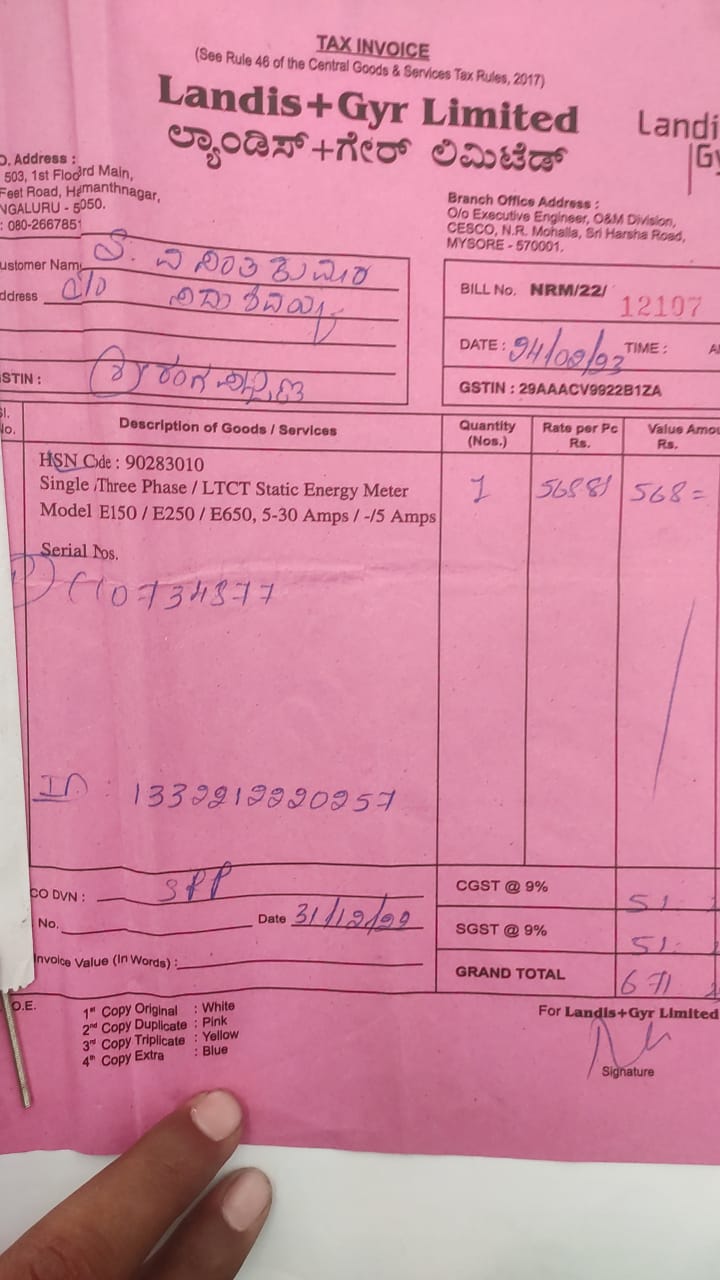 TAX INVOICE
(See Rule 46 of the Central Goods & Services Tax Rules, 2017)
Landis+Gyr Limited
ಲ್ಯಾಂಡಿಸ್+ಗೇರ್ ಲಿಮಿಟೆಡ್
Landi
Gy
O. Address :
503, 1st Floo rd Main,
Feet Road, Hemanthnagar,
NGALURU - 5 050.
: 080-2667851
Branch Office Address :
O/o Executive Engineer, O&M Division,
CESCO, N.R. Mohalla, Sri Harsha Road,
MYSORE - 570001.
ustomer Nam
ddress C/o
STIN :
BILL No. NRM/22/ 12107
DATE : TIME : A
GSTIN : 29AAACV9922B1ZA
Sl. No. Description of Goods / Services Quantity (Nos.) Rate per Pc Rs. Value Amou Rs.
HSN Code : 90283010
Single /Three Phase / LTCT Static Energy Meter 1 568=
Model E150 / E250 / E650, 5-30 Amps / -/5 Amps
Serial Nos.
10734377
ID : 1332212220257
CO DVN : SPP
No. Date 31/12/22
Invoice Value (In Words) :
CGST @ 9% 51
SGST @ 9% 51
GRAND TOTAL 671
O.E.
1st Copy Original : White
2nd Copy Duplicate : Pink
3rd Copy Triplicate : Yellow
4th Copy Extra : Blue
For Landis+Gyr Limited
Signature